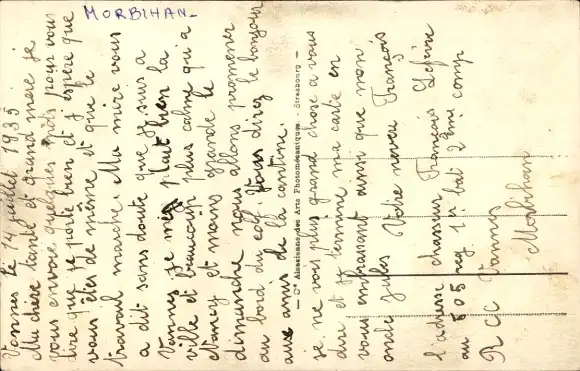 MORBIHAN
Vannes le 14 juillet 1935
Ma chère tante et grand mère je
vous envoie quelques mots pour vous
dire que je porte bien et j espère que
vous êtes de même et que le
travail marche. Ma mère vous
a dit sans doute que je suis a
Vannes je me plait bien la
ville et beaucoup plus calme qu'a
Nancy et moins grande le
dimanche nous allons promener
au bord du Vous direz le bonjour
aux amis de la cantine.
— Cie Alsacienne des Arts Photomécaniques. - Strasbourg —
je ne vois plus grand chose a vous
dire et je termine ma carte en
vous embrassant ainsi que mon
oncle jules Votre neveu François
l'adresse chasseur François
au 505 reg 1er bat 2ème comp
R C C Vannes
Morbihan